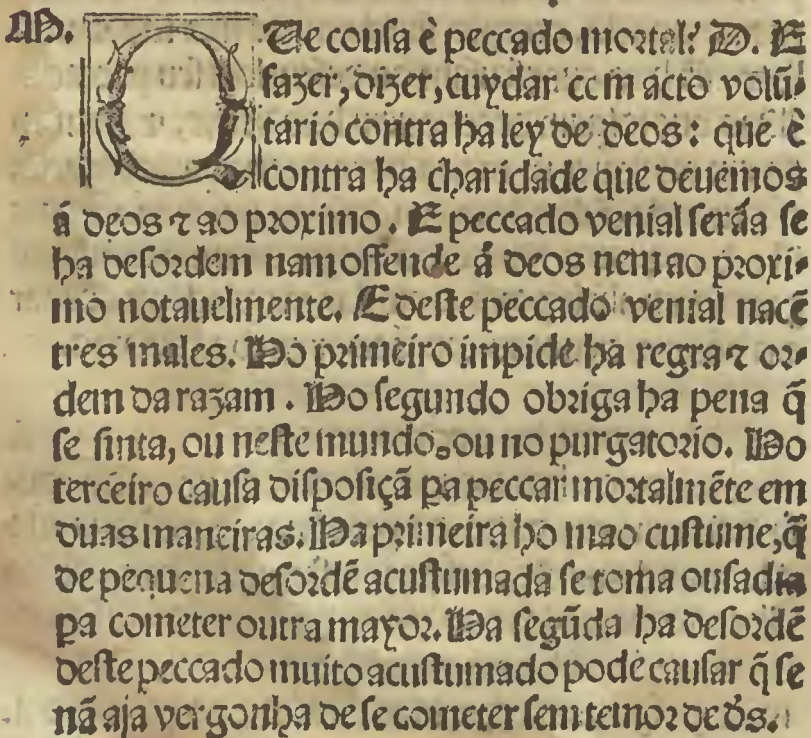 M. QUe cousa è peccado mortal? D. E
fazer, dizer, cuydar com acto volũ-
tario contra ha ley de deos: que è
contra ha charidade que deuemos
á deos ⁊ ao proximo. E peccado venial serâa se
ha desordem nam offende á deos nem ao proxi-
mo notauelmente. E deste peccado venial nacẽ
tres males. Ho primeiro impide ha regra ⁊ or-
dem da razam. Ho segundo obriga ha pena q̃
se sinta, ou neste mundo, ou no purgatorio. Ho
terceiro causa disposiçã pa peccar mortalmẽte em
duas maneiras. Ha primeira ho mao custume, q̃
de pequena desordẽ acustumada se toma ousadia
pa cometer outra mayor. Ha segũda ha desordẽ
deste peccado muito acustumado pode causar q̃ se
nã aja vergonha de se cometer sem temor de d̃s.